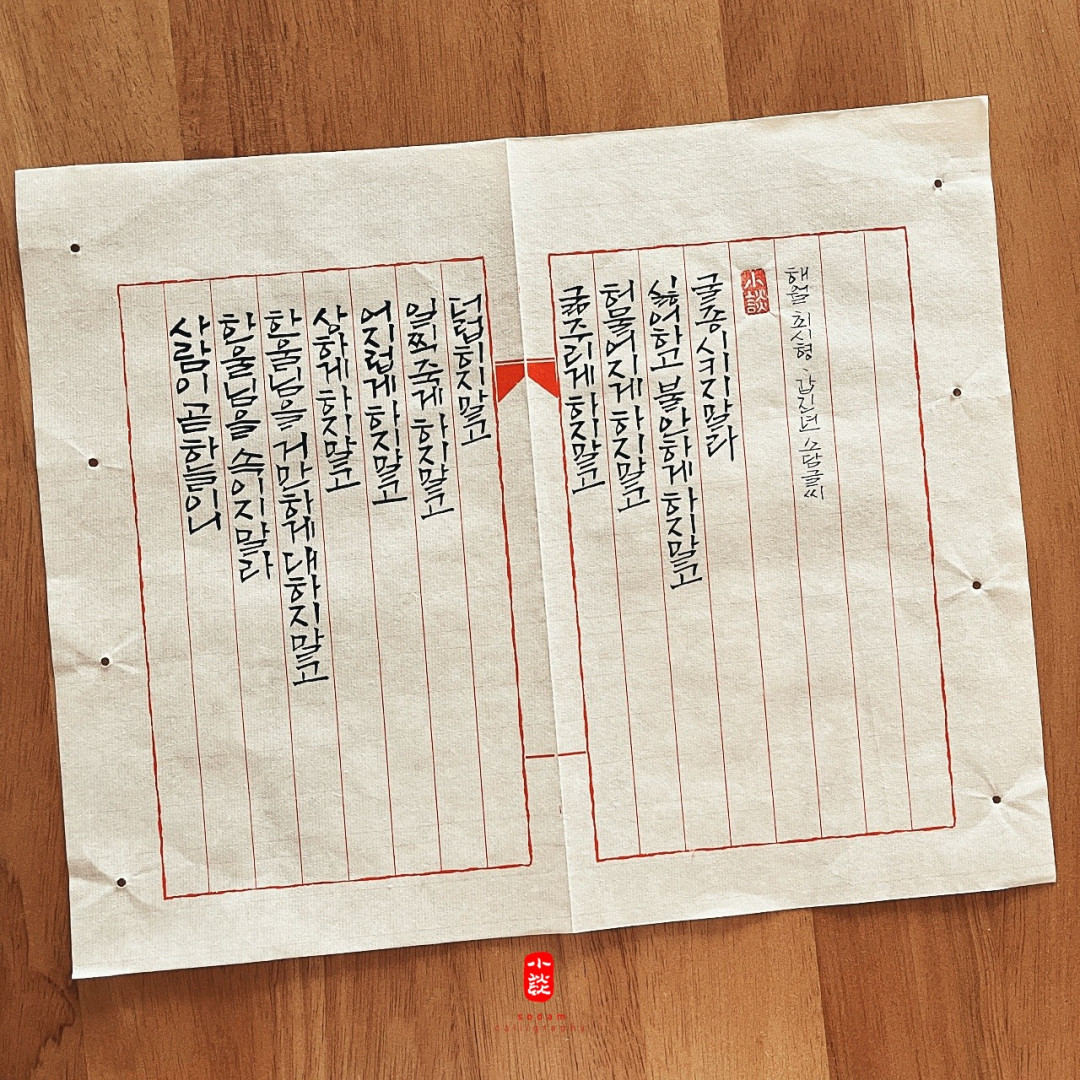 사람이 곧 하늘이니
한울님을 속이지말라
한울님을 거만하게 대하지말고
상하게 하지말고
어지럽게 하지말고
일찍죽게 하지말고
더럽히지말고
굶주리게 하지말고
허물어지게 하지말고
싫어하고 불안하게 하지말고
굴종시키지말라
小談
해월 최시형 갑진년 소담글씨
小談
sodam
calligraphy